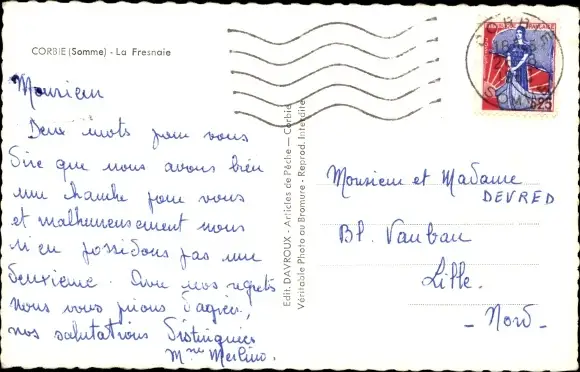 CORBIE (Somme) - La Fresnaie
Monsieur
Deux mots pour vous
dire que nous avons bien
une chambre pour vous
et malheureusement nous
n'en possédons pas une
deuxième. Avec nos regrets
nous vous prions d'agréer,
nos salutations distinguées
Mme Merlino.
Edit. DAVROUX - Articles de Pêche - Corbie
Véritable Photo au Bromure - Reprod. Interdite
CORBIE
SOMME
0,25
Monsieur et Madame
DEVRED
Bl. Vauban
Lille.
- Nord -